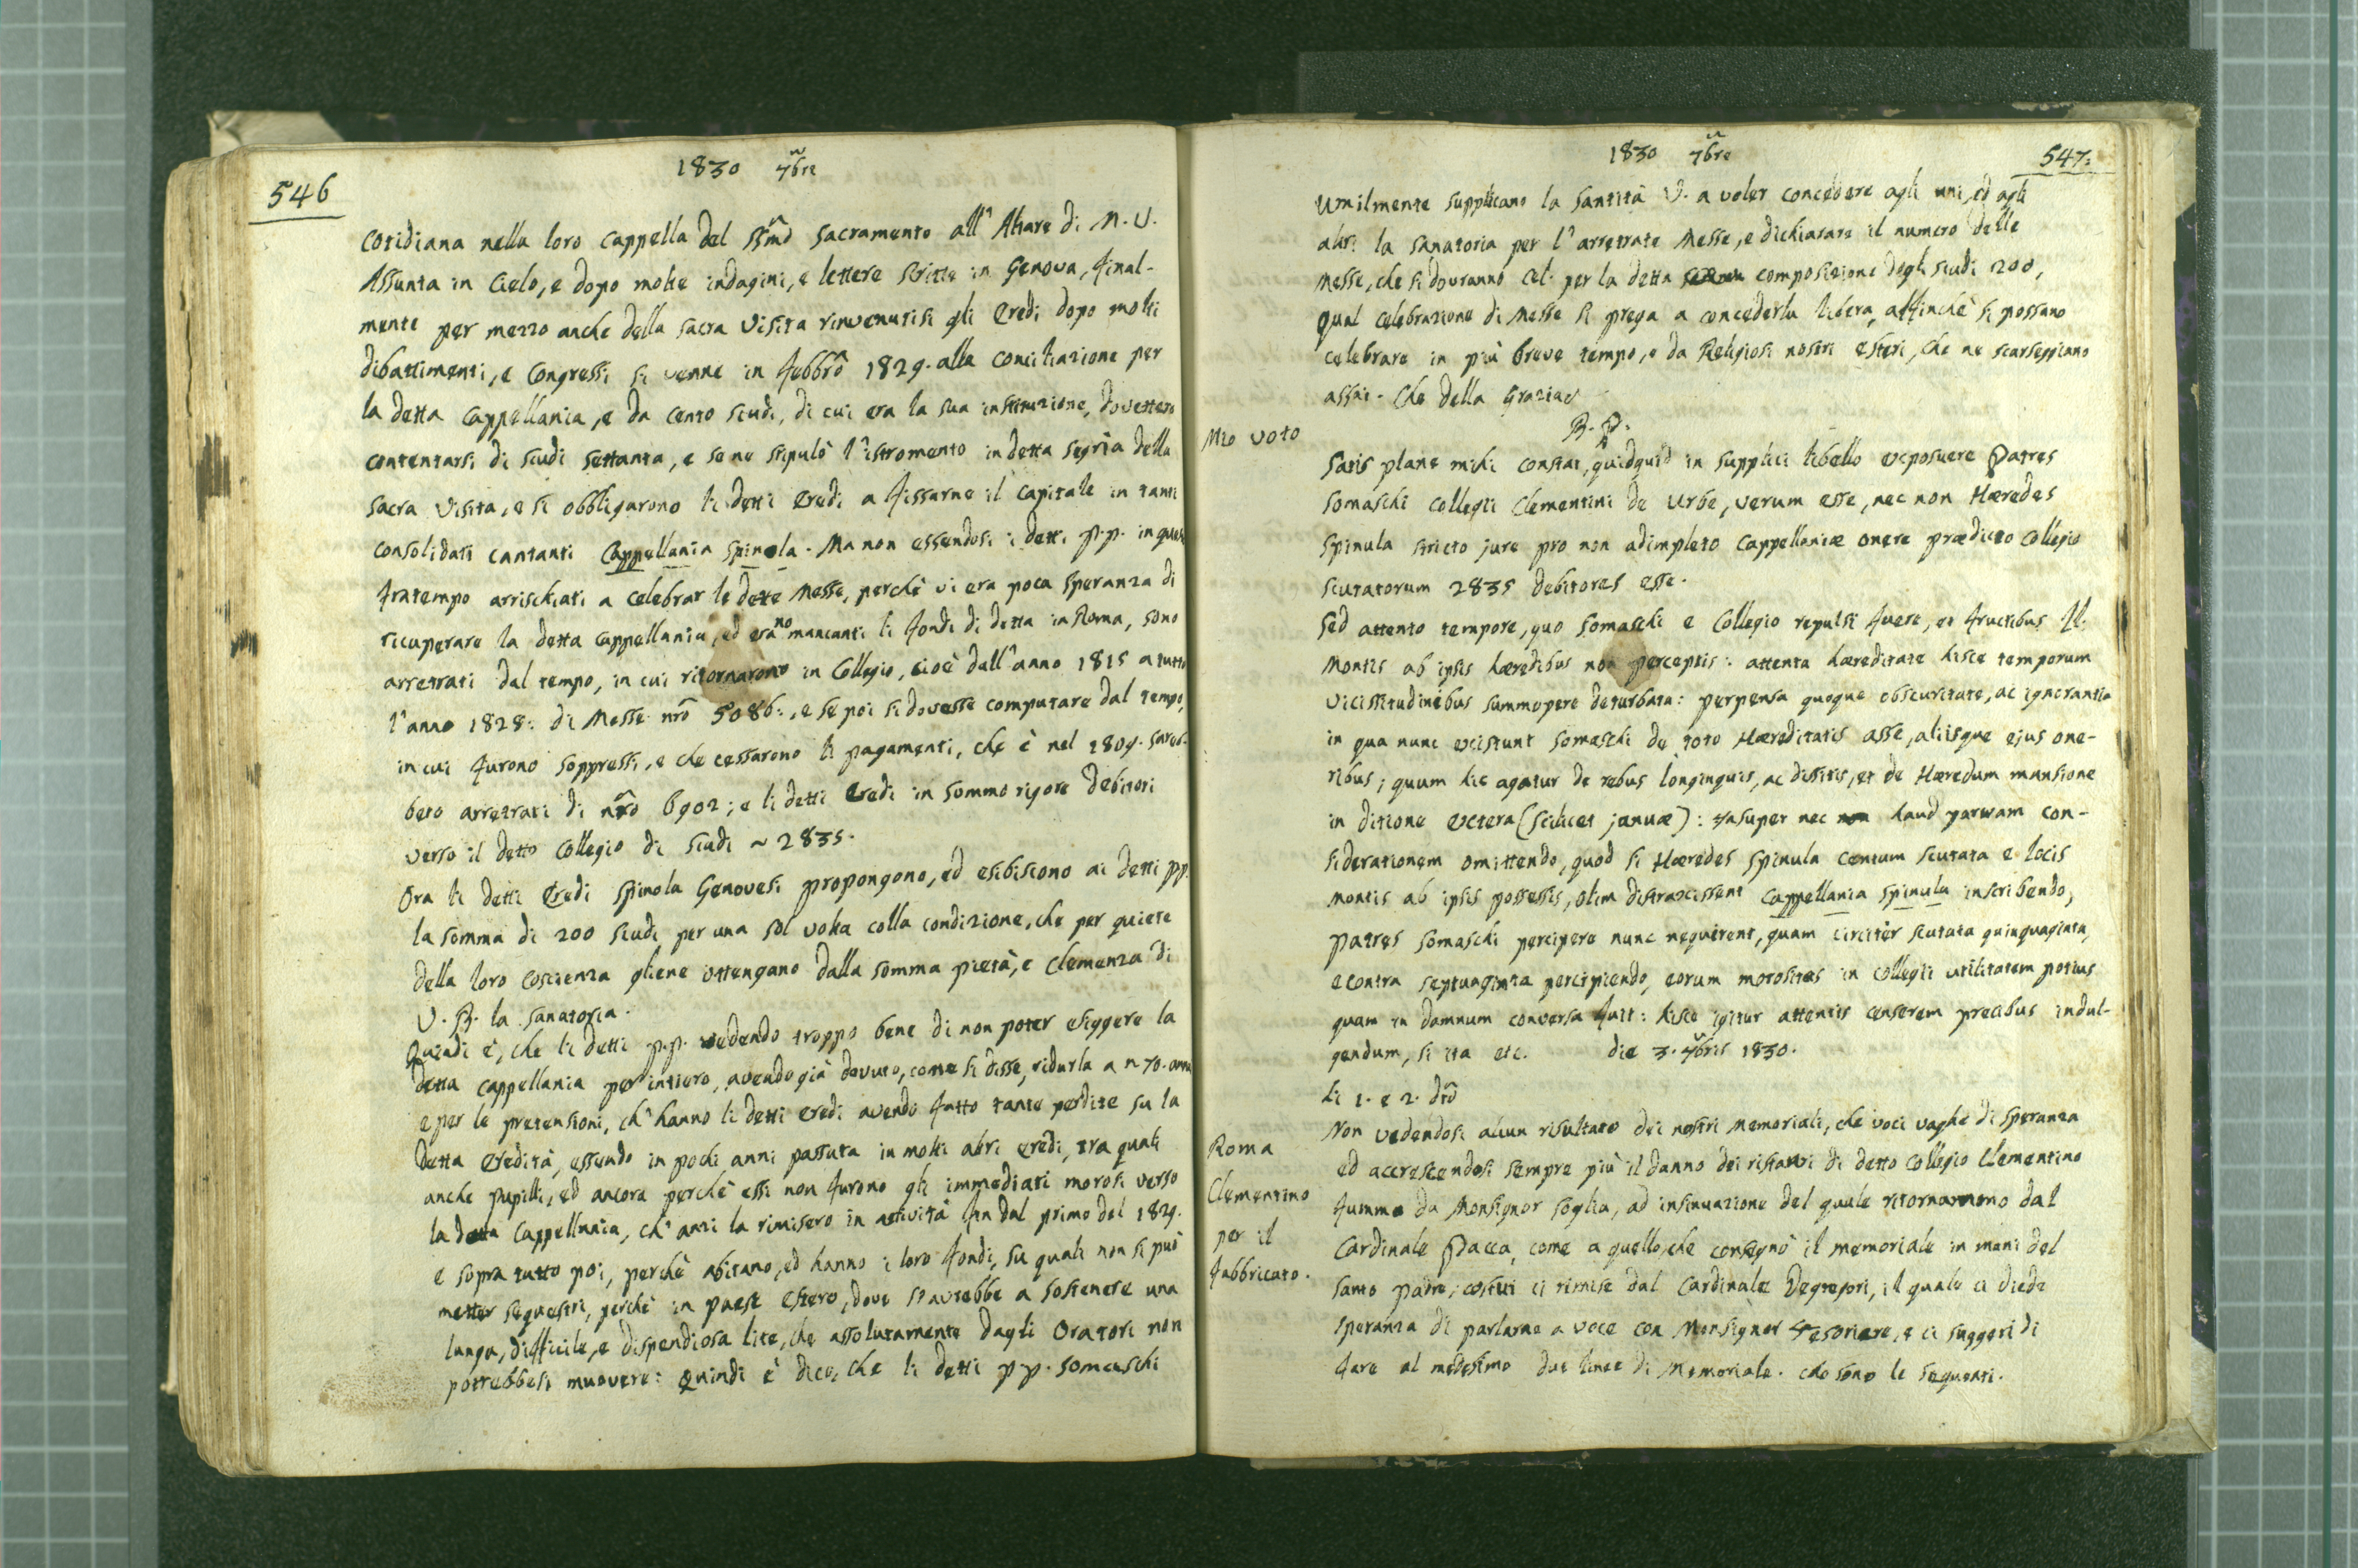 546
1830 7bre
cotidiana nella loro cappella del SSmo Sacramento all'Altare di M. V.
Assunta in Cielo, e dopo molte indagini, e lettere scritte in Genova, final-
mente per mezzo anche della sacra Visita rinvenutisi gli Eredi dopo molti
dibattimenti, e Congressi si venne in Febbro 1829. alla conciliazione per
la detta Cappellania, e da cento scudi, di cui era la sua instituzione, dovettero
contentarsi di scudi settanta, e se ne stipulò l'istromento in detta segria della
sacra Visita, e si obbligarono li detti Eredi a fissarne il capitale in tanti
consolidati cantanti Cappellania Spinola. Ma non essendosi i detti P.P. in questo
fratempo arrischiati a celebrar le dette Messe, perchè vi era poca speranza di
ricuperare la detta Cappellania, ed erano mancanti li fondi di detta in Roma, sono
arretrati dal tempo, in cui ritornarono in Collegio, cioè dall'anno 1815 a tutto
l'anno 1828: di Messe nro 5086:, e se poi si dovesse computare dal tempo,
in cui furono soppressi, e che cessarono li pagamenti, che è nel 1809. sareb-
bero arretrati di nro 6902; e li detti Eredi in sommo rigore debitori
verso il detto Collegio di scudi ~ 2835.
Ora li detti Eredi Spinola Genovesi propongono, ed esibiscono ai detti PP.
la somma di 200 scudi per una sol volta colla condizione, che per quiete
della loro coscienza gliene ottengano dalla somma pietà, e clemenza di
V. B. la sanatoria.
Quindi è, che li detti P.P. vedendo troppo bene di non poter esiggere la
detta Cappellania per intiero, avendo già dovuto, come si disse, ridurla a n 70. annui
e per le pretensioni, ch'hanno li detti Eredi avendo fatto tante perdite su la
detta Eredità, essendo in pochi anni passata in molti altri Eredi, tra quali
anche pupilli, ed ancora perchè essi non furono gli immediati morosi verso
la detta Cappellania, ch'anzi la rimisero in attività fin dal primo del 1829.
e sopra tutto poi, perchè abitano, ed hanno i loro fondi, su quali non si può
metter sequestri, perchè in paese estero, dove s'avrebbe a sostenere una
lunga, difficile, e dispendiosa lite, che assolutamente dagli Oratori non
potrebbesi muovere: Quindi è dico, che li detti PP. Somaschi
1830 7bre
547:
Umilmente supplicano la Santità V. a voler concedere agli uni, ed agli
altri la sanatoria per l'arretrate Messe, e dichiarare il numero delle
Messe, che si dovranno cel. per la detta composizione degli scudi 200,
qual celebrazione di Messe si prega a concederla libera, affinchè si possano
celebrare in più breve tempo, e da Religiosi nostri esteri, che ne scarseggiano
assai. Che della Grazia
B. P.
Mio voto
Satis plane mihi constat, quidquid in supplici libello exposuere Patres
Somaschi Collegii Clementini de Urbe, verum esse, nec non Hæredes
Spinula stricto jure pro non adimpleto Cappellaniæ onere prædicto Collegio
scutatorum 2835 debitores esse.
Sed attento tempore, quo Somaschi e Collegio repulsi fuere, et fructibus ll.
Montis ab ipsis hæredibus non perceptis: attenta hæreditate hisce temporum
vicissitudinibus summopere deturbata: perpensa quoque obscuritate, ac ignorantia
in qua nunc existunt Somaschi de toto Hæreditatis asse, aliisque ejus one-
ribus; quum hic agatur de rebus longinquis, ac dissitis, et de Hæredum mansione
in ditione extera (scilicet januæ): insuper nec haud parvam con-
siderationem omittendo, quod si Hæredes Spinula centum scutata e locis
montis ab ipsis possessis, olim distraxissent Cappellania Spinula inscribendo,
Patres Somaschi percipere nunc nequirent, quam circiter scutata quinquaginta,
econtra septuaginta percipiendo, eorum morositas in Collegii utilitatem potius
quam in damnum conversa fuit: hisce igitur attentis censerem precibus indul-
gendum, si ita etc. die 3. 7bris 1830.
li 1. e 2. dto
Roma
Clementino
per il
fabbricato.
Non vedendosi alcun risultato dei nostri Memoriali, che voci vaghe di speranza
ed accrescendosi sempre più il danno dei ristauri di detto Collegio Clementino
fummo da Monsignor Soglia, ad insinuazione del quale ritornammo dal
Cardinale Pacca, come a quello, che consegnò il memoriale in mani del
Santo Padre; costui ci rimise dal Cardinale Degregori, il quale ci diede
speranza di parlarne a voce con Monsignor Tesoriere, e ci suggerì di
fare al medesimo due linee di Memoriale. che sono le seguenti.